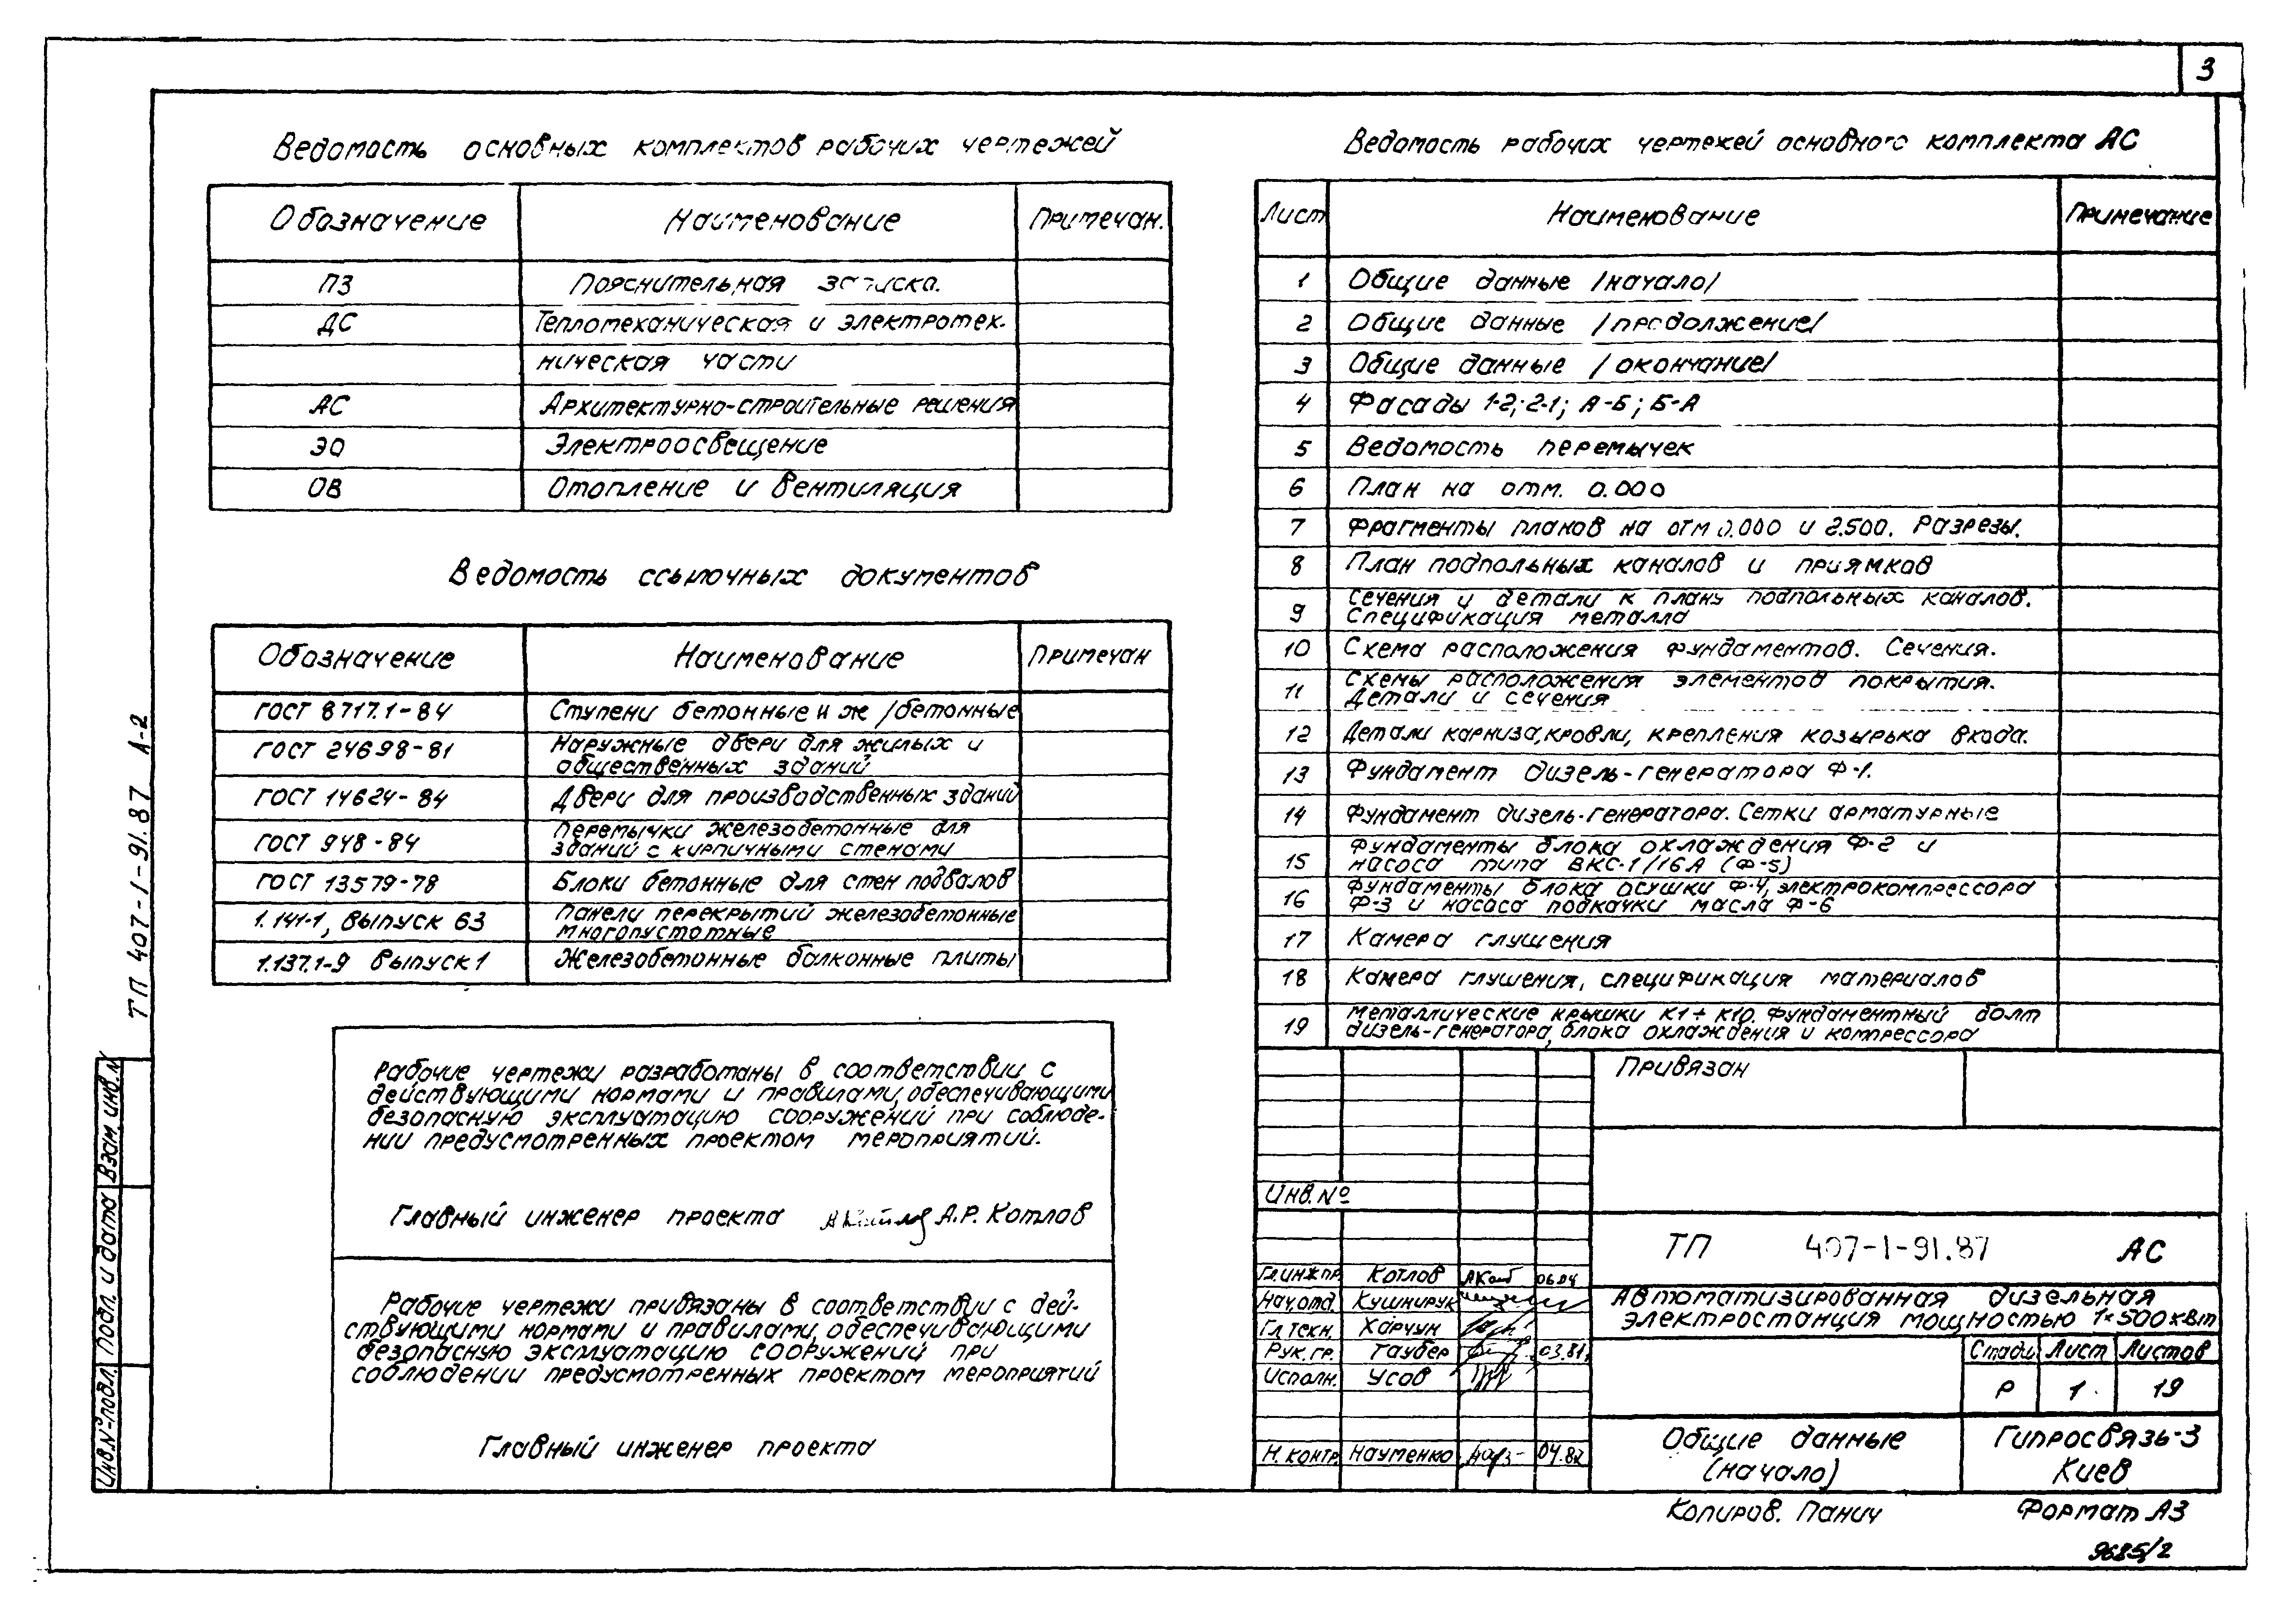 3
Ведомость основных комплектов рабочих чертежей
Обозначение Наименование Примечан.
ПЗ Пояснительная записка.
ДС Тепломеханическая и электротех-
ническая части
АС Архитектурно-строительные решения
ЭО Электроосвещение
ОВ Отопление и вентиляция
Ведомость ссылочных документов
Обозначение Наименование Примечан
ГОСТ 8717.1-84 Ступени бетонные и ж/бетонные
ГОСТ 24698-81 Наружные двери для жилых и
общественных зданий
ГОСТ 14624-84 Двери для производственных зданий
ГОСТ 948-84 Перемычки железобетонные для
зданий с кирпичными стенами
ГОСТ 13579-78 Блоки бетонные для стен подвалов
1.141-1, выпуск 63 Панели перекрытий железобетонные
многопустотные
1.137.1-9 выпуск 1 Железобетонные балконные плиты
Рабочие чертежи разработаны в соответствии с
действующими нормами и правилами, обеспечивающими
безопасную эксплуатацию сооружений при соблюде-
нии предусмотренных проектом мероприятий.
Главный инженер проекта А.Р. Котлов
Рабочие чертежи привязаны в соответствии с дей-
ствующими нормами и правилами, обеспечивающими
безопасную эксплуатацию сооружений при
соблюдении предусмотренных проектом мероприятий
Главный инженер проекта
Ведомость рабочих чертежей основного комплекта АС
Лист Наименование Примечание
1 Общие данные /начало/
2 Общие данные /продолжение/
3 Общие данные /окончание/
4 Фасады 1-2; 2-1; А-Б; Б-А
5 Ведомость перемычек
6 План на отм. 0.000
7 Фрагменты планов на отм 0.000 и 2.500. Разрезы.
8 План подпольных каналов и приямков
9 Сечения и детали к плану подпольных каналов.
Спецификация металла
10 Схема расположения фундаментов. Сечения.
11 Схемы расположения элементов покрытия.
Детали и сечения
12 Детали карниза, кровли, крепления козырька входа.
13 Фундамент дизель-генератора Ф-1.
14 Фундамент дизель-генератора. Сетки арматурные
15 Фундаменты блока охлаждения Ф-2 и
насоса типа ВКС-1/16А (Ф-5)
16 Фундаменты блока осушки Ф-4, электрокомпрессора
Ф-3 и насоса подкачки масла Ф-6
17 Камера глушения
18 Камера глушения, спецификация материалов
19 Металлические крышки К1÷К10. Фундаментный болт
дизель-генератора, блока охлаждения и компрессора
Привязан
Инв. №
ТП 407-1-91.87 АС
Гл.инж.пр. Котлов АКот 06.04
Нач.отд. Кушнирук
Гл.техн. Харчун
Рук.гр. Таубер 03.81
Исполн. Усов
Н.контр. Науменко 04.82
Автоматизированная дизельная
электростанция мощностью 1×500 кВт
Стади Лист Листов
Р 1 19
Общие данные
(начало)
Гипросвязь-3
Киев
Копиров. Панич Формат А3
9685/2
ТП 407-1-91.87 А-2
Взам. инв. №
Подп. и дата
Инв. № подл.